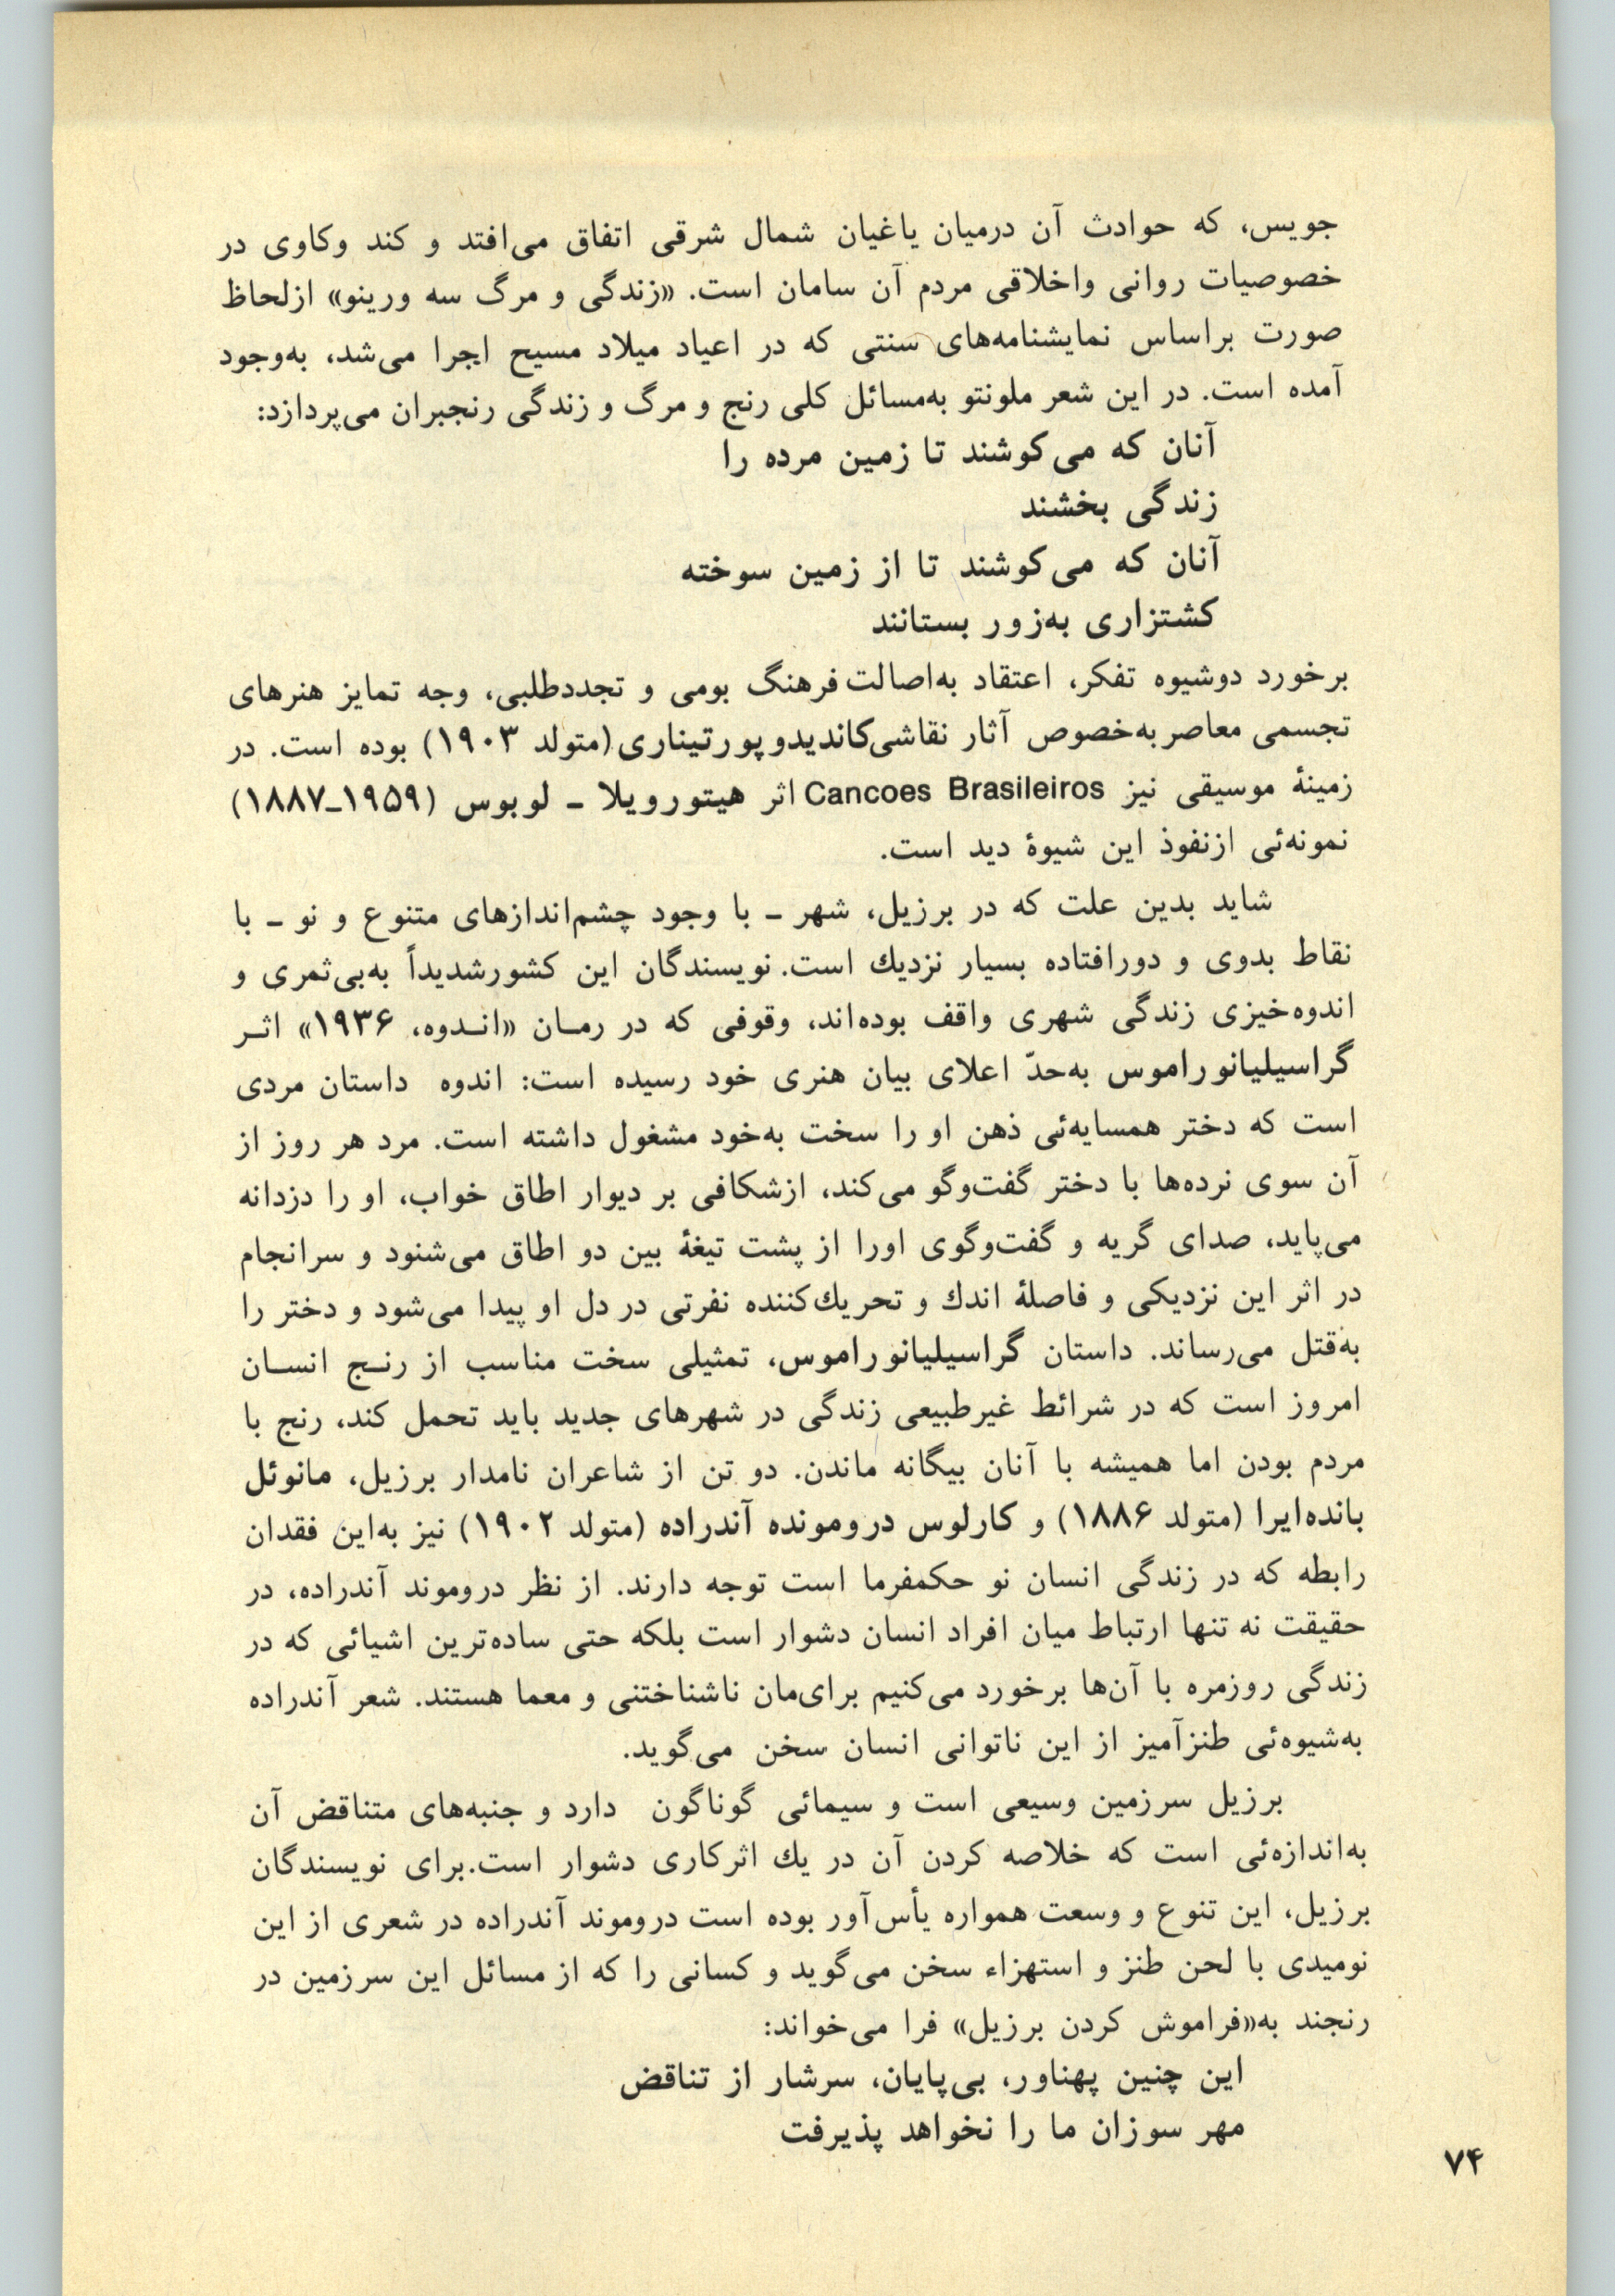 جویس، که حوادث آن درمیان یاغیان شمال شرقی اتفاق می‌افتد و کند وکاوی در
خصوصیات روانی واخلاقی مردم آن سامان است. «زندگی و مرگ سه ورینو» ازلحاظ
صورت براساس نمایشنامه‌های سنتی که در اعیاد میلاد مسیح اجرا می‌شد، به‌وجود
آمده است. در این شعر ملونتو به‌مسائل کلی رنج و مرگ و زندگی رنجبران می‌پردازد:
آنان که می‌کوشند تا زمین مرده را
زندگی بخشند
آنان که می‌کوشند تا از زمین سوخته
کشتزاری به‌زور بستانند
برخورد دوشیوه تفکر، اعتقاد به‌اصالت فرهنگ بومی و تجددطلبی، وجه تمایز هنرهای
تجسمی معاصر به‌خصوص آثار نقاشی کاندیدو پورتیناری (متولد ۱۹۰۳) بوده است. در
زمینهٔ موسیقی نیز Cancoes Brasileiros اثر هیتورویلا ـ لوبوس (۱۹۵۹ـ۱۸۸۷)
نمونه‌ئی ازنفوذ این شیوهٔ دید است.
شاید بدین علت که در برزیل، شهر ـ با وجود چشم‌اندازهای متنوع و نو ـ با
نقاط بدوی و دورافتاده بسیار نزدیك است. نویسندگان این کشورشدیداً به‌بی‌ثمری و
اندوه‌خیزی زندگی شهری واقف بوده‌اند، وقوفی که در رمـان «انـدوه، ۱۹۳۶» اثـر
گراسیلیانوراموس به‌حدّ اعلای بیان هنری خود رسیده است: اندوه داستان مردی
است که دختر همسایه‌ئی ذهن او را سخت به‌خود مشغول داشته است. مرد هر روز از
آن سوی نرده‌ها با دختر گفت‌وگو می‌کند، ازشکافی بر دیوار اطاق خواب، او را دزدانه
می‌پاید، صدای گریه و گفت‌وگوی اورا از پشت تیغهٔ بین دو اطاق می‌شنود و سرانجام
در اثر این نزدیکی و فاصلهٔ اندك و تحریك‌کننده نفرتی در دل او پیدا می‌شود و دختر را
به‌قتل می‌رساند. داستان گراسیلیانوراموس، تمثیلی سخت مناسب از رنـج انسـان
امروز است که در شرائط غیرطبیعی زندگی در شهرهای جدید باید تحمل کند، رنج با
مردم بودن اما همیشه با آنان بیگانه ماندن. دو تن از شاعران نامدار برزیل، مانوئل
بانده‌ایرا (متولد ۱۸۸۶) و کارلوس درومونده آندراده (متولد ۱۹۰۲) نیز به‌این فقدان
رابطه که در زندگی انسان نو حکمفرما است توجه دارند. از نظر دروموند آندراده، در
حقیقت نه تنها ارتباط میان افراد انسان دشوار است بلکه حتی ساده‌ترین اشیائی که در
زندگی روزمره با آن‌ها برخورد می‌کنیم برای‌مان ناشناختنی و معما هستند. شعر آندراده
به‌شیوه‌ئی طنزآمیز از این ناتوانی انسان سخن می‌گوید.
برزیل سرزمین وسیعی است و سیمائی گوناگون دارد و جنبه‌های متناقض آن
به‌اندازه‌ئی است که خلاصه کردن آن در یك اثرکاری دشوار است.برای نویسندگان
برزیل، این تنوع و وسعت همواره یأس‌آور بوده است دروموند آندراده در شعری از این
نومیدی با لحن طنز و استهزاء سخن می‌گوید و کسانی را که از مسائل این سرزمین در
رنجند به«فراموش کردن برزیل» فرا می‌خواند:
این چنین پهناور، بی‌پایان، سرشار از تناقض
مهر سوزان ما را نخواهد پذیرفت
۷۴